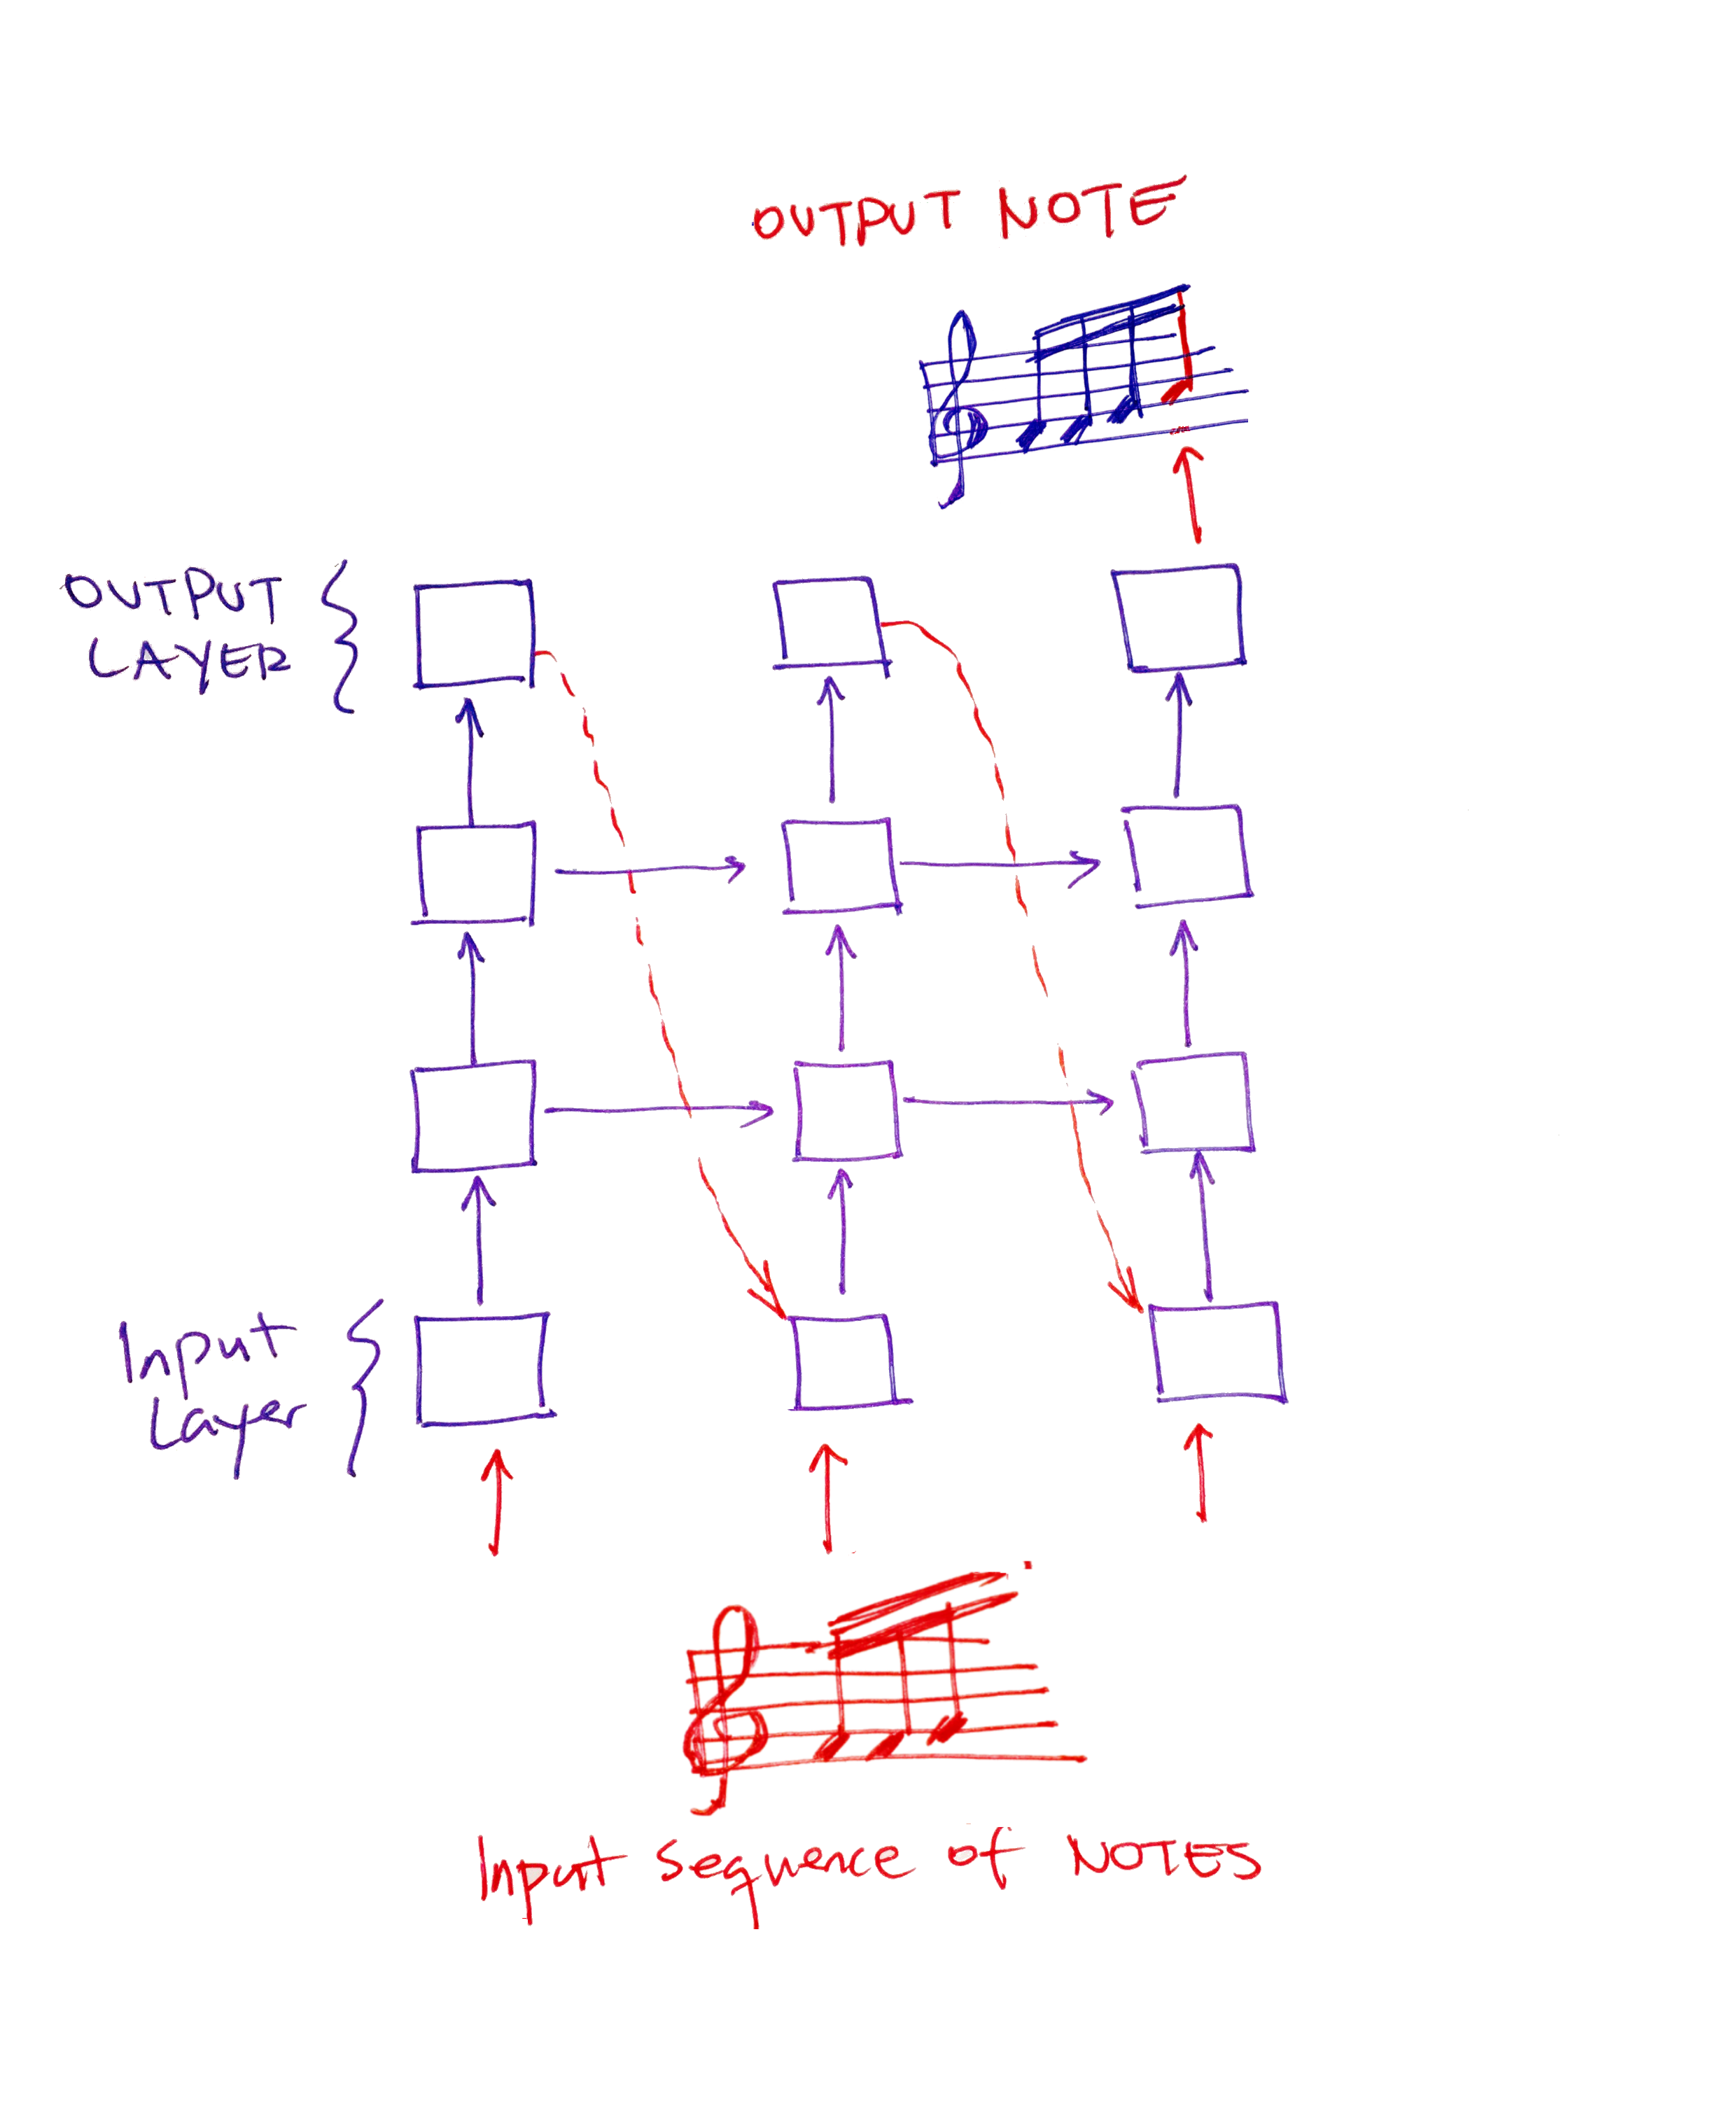 OUTPUT NOTE
OUTPUT
LAYER
Input
Layer
Input sequence of NOTES